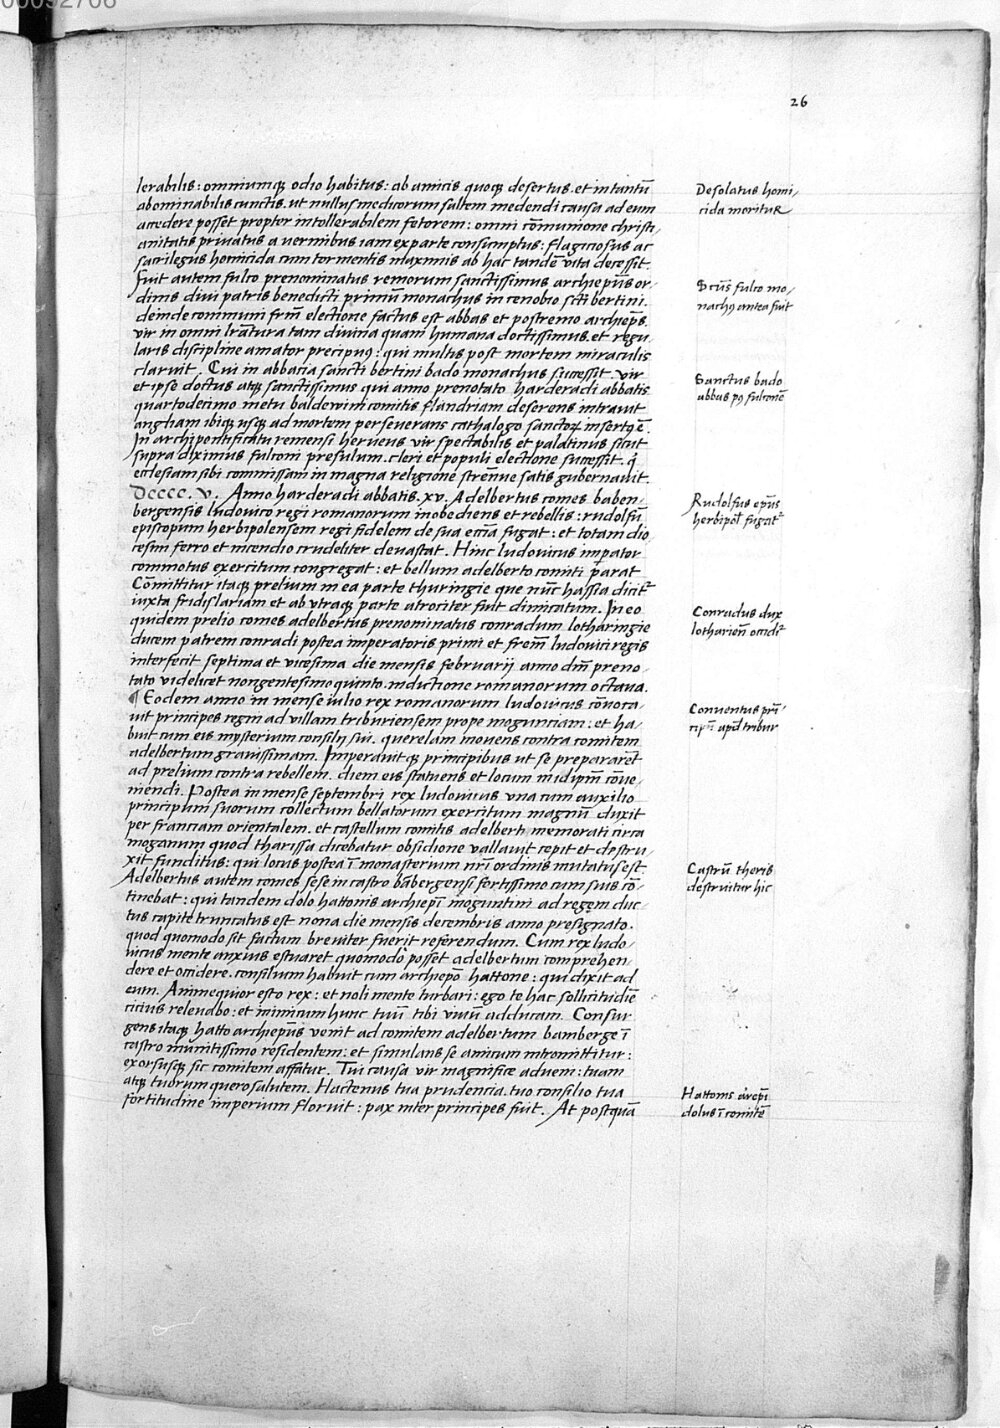 00092706
26
lerabilis: omniumqꝫ odio habitus: ab amicis quoqꝫ desertus. et intantū
abominabilis cunctis. ut nullus medicorum saltem medendi causa ad eum
accedere posset propter intollerabilem fetorem: omni cōmunione christi/
anitatis privatus a vermibus iam exparte consumptus: flagiciosus ac
sacrilegus homicida cum tormentis maximis ab hac tandē vita decessit.
Desolatus homi/
cida moritur
Fuit autem fulco prenominatus remorum sanctissimus archiepūs or/
dinis divi patris benedicti primū monachus in cenobio scti bertini.
deinde communi frm̄ electione factus est abbas et postremo archiep̄s.
vir in omni lrātura tam divina quam humana doctissimus. et regu
laris discipline amator precipuꝯ: qui multis post mortem miraculis
Scūs fulco mo/
nachꝯ antea fuit
claruit. Cui in abbacia sancti bertini bado monachus successit. vir
et ipse doctus atqꝫ sanctissimus qui anno prenotato harderadi abbatis
quartodecimo metu baldewini comitis flandriam deserens intravit
angliam ibiqꝫ usqꝫ ad mortem perseverans cathalogo sanctoꝝ insertꝯ ē.
Sanctus bado
abbas pꝯ fulconē
In archipontificatu remensi herveus vir spectabilis et palatinus sicut
supra diximus fulconi presulum. cleri et populi electione successit. q̄
ecclesiam sibi commissam in magna religione strenue satis gubernavit.
Dcccc. v. Anno harderadi abbatis. xv. Adelbertus comes baben/
bergensis ludovico regi romanorum inobediens et rebellis: rudolfū
episcopum herbipolensem regi fidelem de sua eccīa fugat: et totam dio
cesim ferro et incendio crudeliter devastat. Hinc ludovicus impator
commotus exercitum congregat: et bellum adelberto comiti parat
Rudolfus epūs
herbipol̄ fugat᷑
Cōmittitur itaqꝫ prelium in ea parte thuringie que nūc hassia dicit᷑
iuxta fridislariam et ab utraqꝫ parte atrociter fuit dimicatum. In eo
quidem prelio comes adelbertus prenominatus conradum lotharingie
ducem patrem conradi postea imperatoris primi et frem̄ ludovici regis
interfecit septima et vicesima die mensis februarij anno dn̄i preno/
tato videlicet nongentesimo quinto. indictione romanorum octava.
Conradus dux
lotharien̄ occidi᷑
¶ Eodem anno in mense iulio rex romanorum ludovicus cōvoca/
vit principes regni ad villam triburiensem prope mogunciam: et ha/
buit cum eis mysterium consilij sui. querelam movens contra comitem
adelbertum gravissimam. Imperavitqꝫ principibus ut se prepararēt
ad prelium contra rebellem. diem eis statuens et locum in id ipm̄ cōve/
niendi. Postea in mense septembri rex ludovicus una cum auxilio
Conventus prī/
cipū apd tribur
principum suorum collectum bellatorum exercitum magnū duxit
per franciam orientalem. et castellum comitis adelberti memorati circa
moganum quod tharissa dicebatur obsidione vallavit cepit et destru/
xit funditus: qui locus postea ī monasterium nrī ordinis mutatꝯ est.
Adelbertus autem comes sese in castro bābergensi fortissimo cum suis cō/
tinebat: qui tandem dolo hattonis archiepī moguntini ad regem duc/
tus capite truncatus est nona die mensis decembris anno presignato.
Castrū theris
destruitur hic
quod quomodo sit factum breviter fuerit referendum. Cum rex ludo/
vicus mente anxius estuaret quomodo posset adelbertum comprehen/
dere et occidere. consilium habuit cum archiepō hattone: qui dixit ad
eum. Animequior esto rex: et noli mente turbari: ego te hac sollicitudīe
cicius relevabo: et inimicum hunc tuū tibi vivū adducam. Consur
gens itaqꝫ hatto archiepūs venit ad comitem adelbertum bamberge ī
castro munitissimo residentem: et simulans se amicum intromittitur:
exorsusqꝫ sic comitem affatur. Tui causa vir magnifice adveni: tuam
atqꝫ tuorum quero salutem. Hactenus tua prudencia. tuo consilio tua
fortitudine imperium floruit: pax inter principes fuit. At postquā
Hattonis arepī
dolus ī comitē